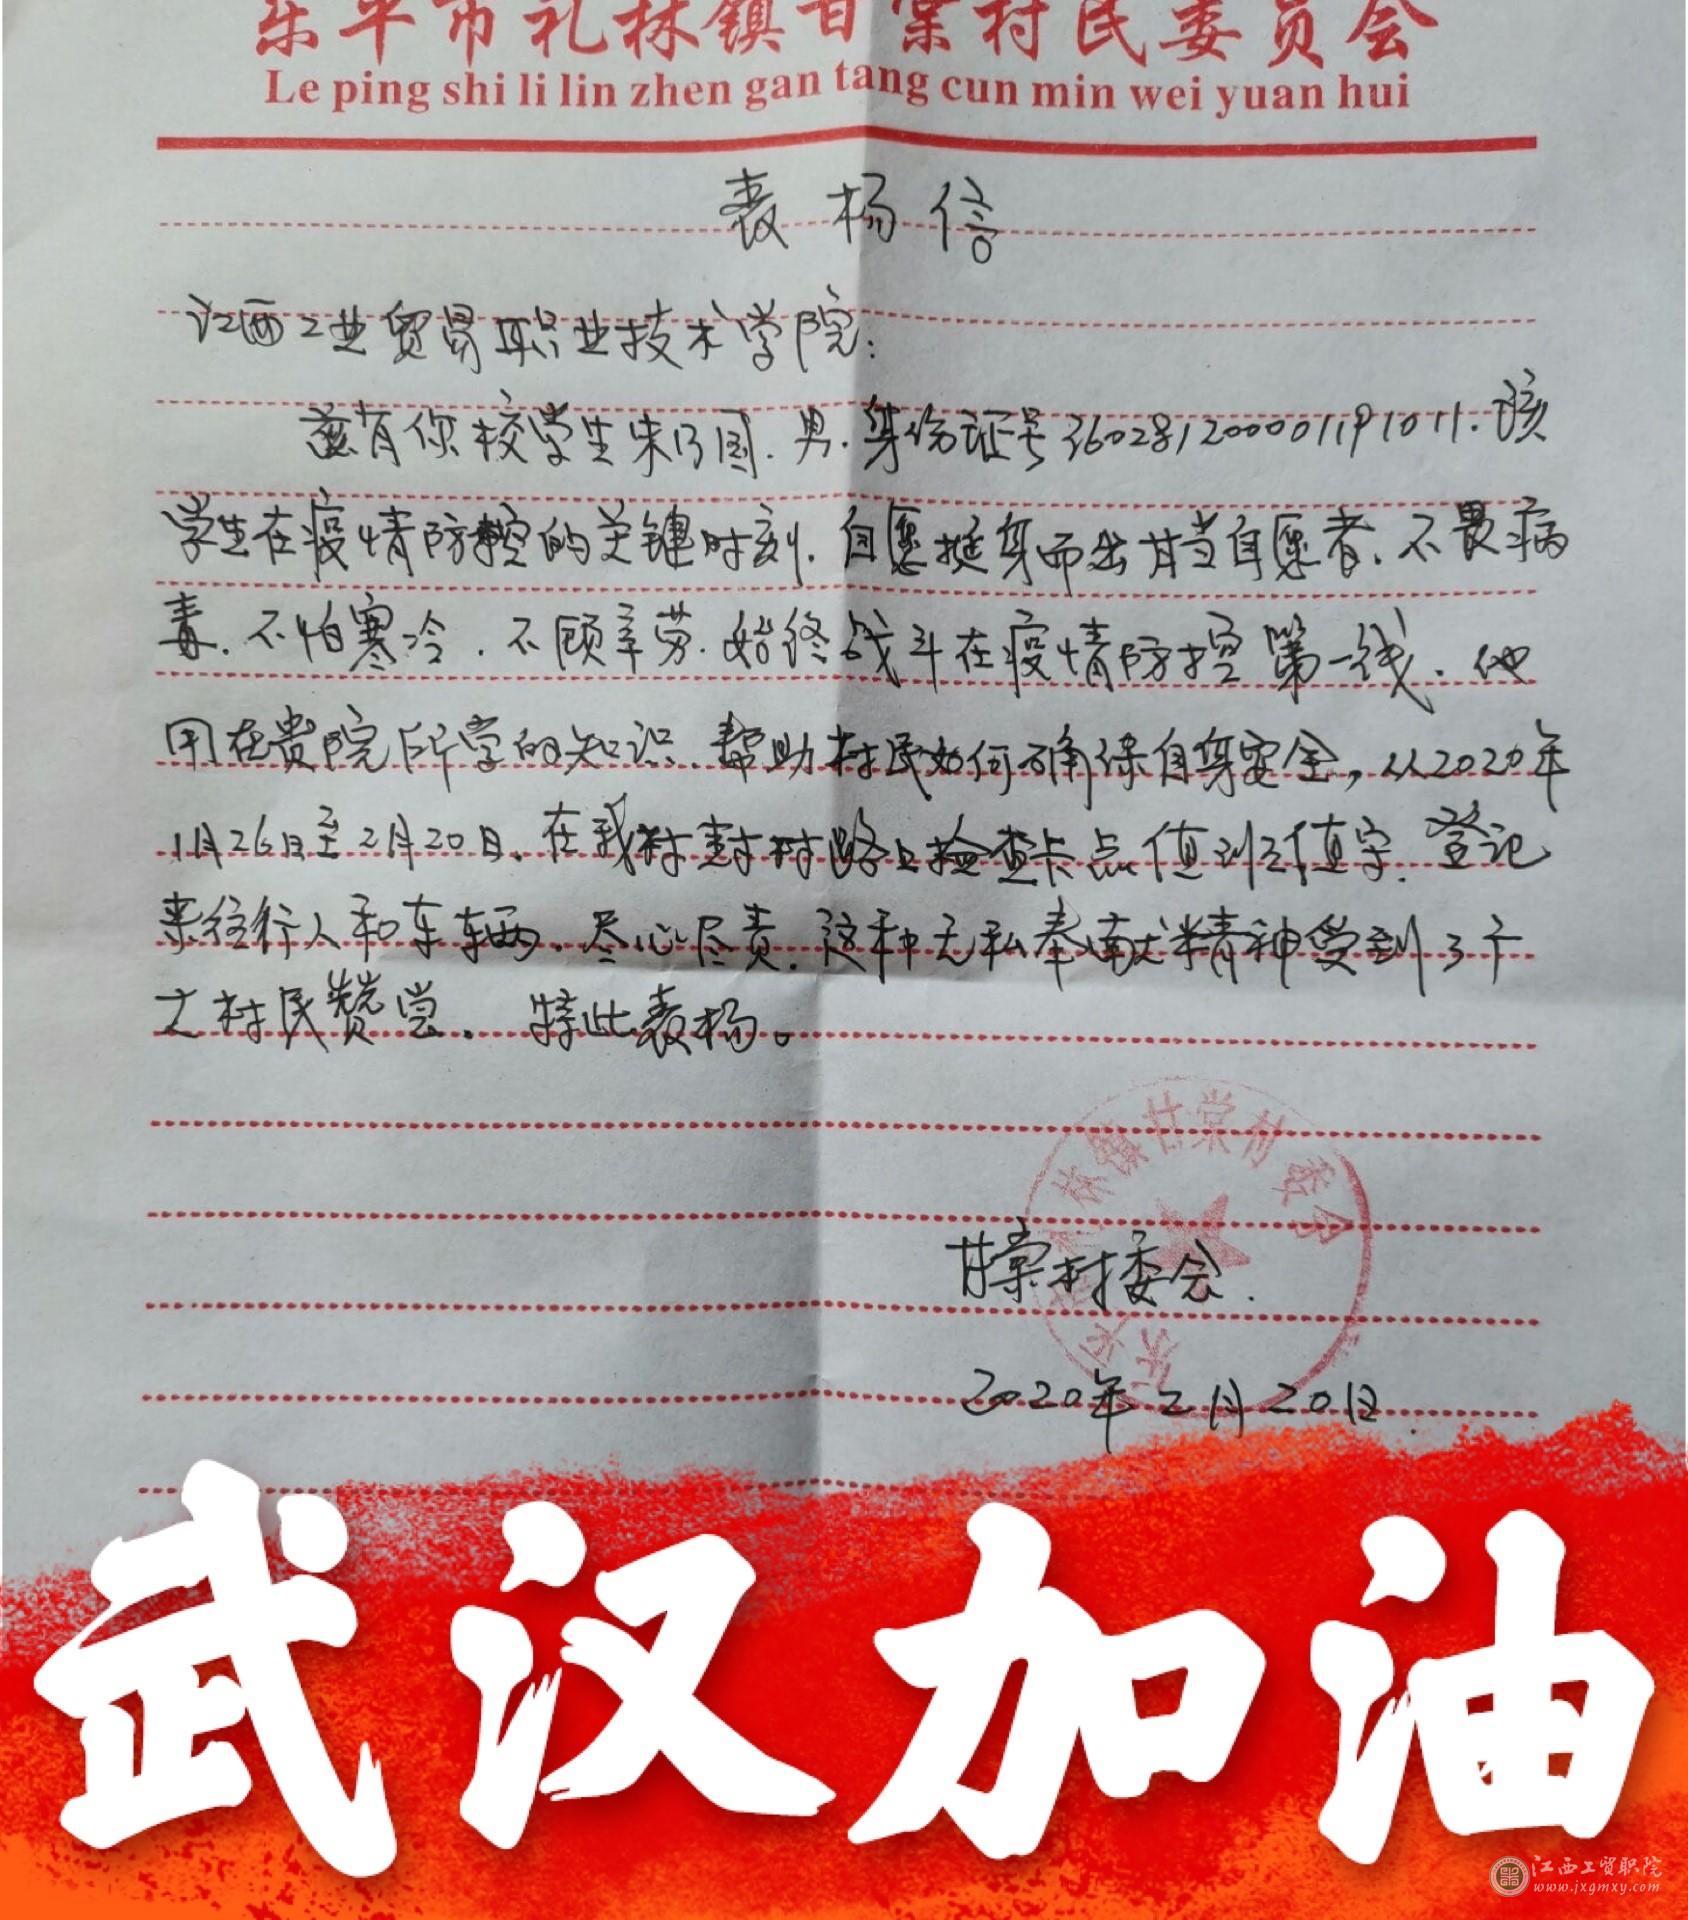 乐平市礼林镇甘棠村民委员会
Le ping shi li lin zhen gan tang cun min wei yuan hui
表杨信
江西工业贸易职业技术学院:
兹有你校学生朱乃国.男.身份证号360281200001191011.该
学生在疫情防控的关键时刻.自愿挺身而出甘当自愿者.不畏病
毒.不怕寒冷.不顾辛劳.始终战斗在疫情防控第一线.他
用在贵院所学的知识.帮助村民如何确保自身安全,从2020年
1月26日至2月20日.在我村封村路口检查卡点值班值守.登记
来往行人和车辆.尽心尽责.这种无私奉献精神受到了广
大村民赞赏.特此表杨。
林镇甘棠村委会
甘棠村委会.
2020年2月20日
武汉加油
江西工贸职院
www.jxgmxy.com